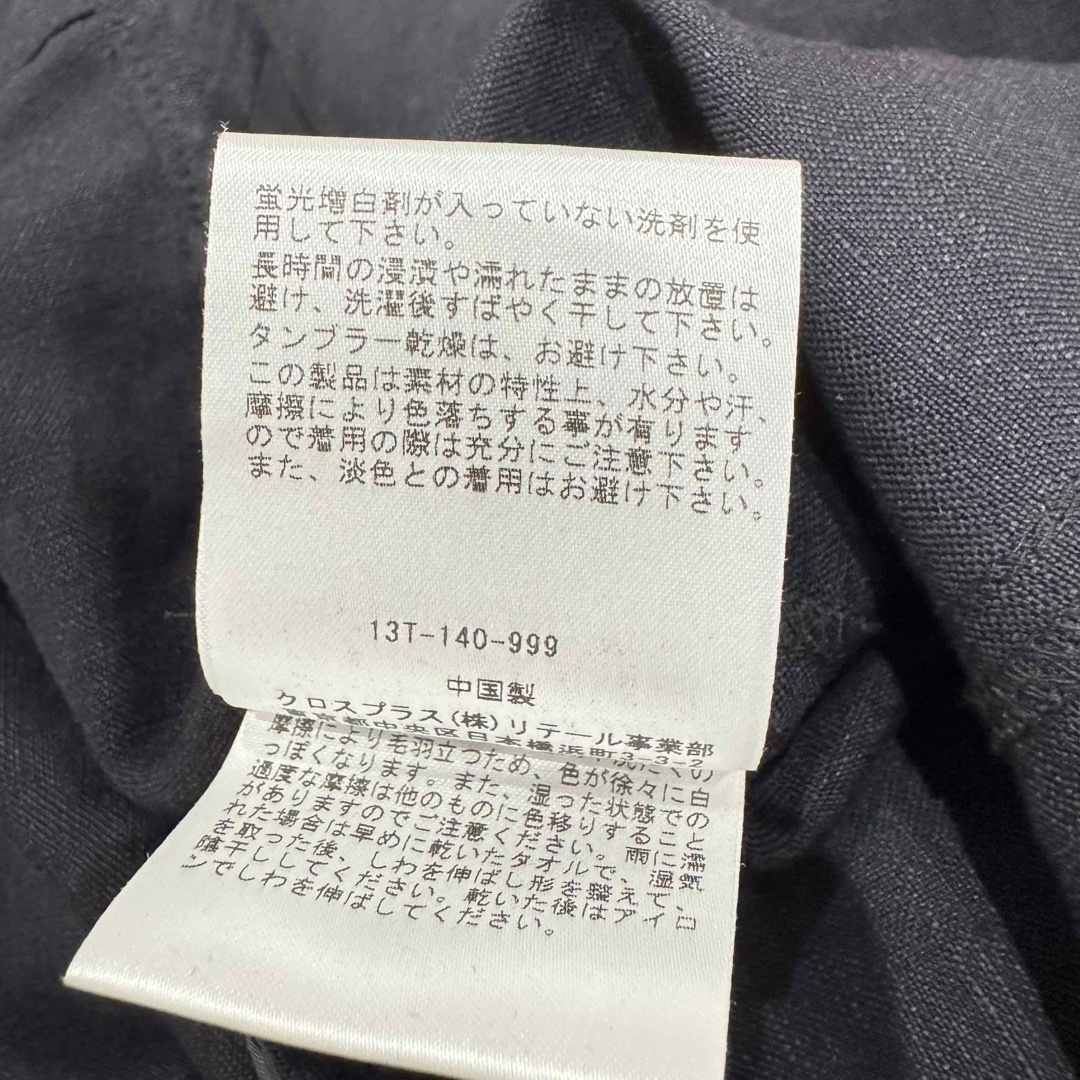 蛍光増白剤が入っていない洗剤を使
用して下さい。
長時間の浸漬や濡れたままの放置は
避け、洗濯後すばやく干して下さい。
タンブラー乾燥は、お避け下さい。
この製品は素材の特性上、水分や汗、
摩擦により色落ちする事が有ります
ので着用の際は充分にご注意下さい。
また、淡色との着用はお避け下さい。
13T-140-999
中国製
クロスプラス(株)リテール事業部
東京都中央区日本橋浜町3-3-2
摩擦により毛羽立つため、色が徐々に白
っぽくなります。また、湿った状態での
過度な摩擦は他のものに色移りすること
がありますのでご注意ください。雨に濡
れた場合は早めに乾いたタオルで、湿気
を取った後、しわを伸ばし形を整えて、
陰干ししてください。乾いた後はアイロ
ンでしわを伸ばしてください。